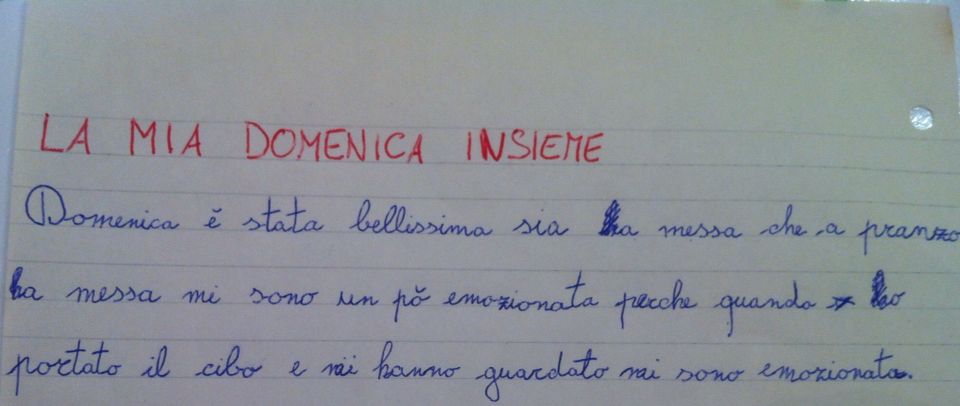 LA MIA DOMENICA INSIEME
Domenica è stata bellissima sia a messa che a pranzo
a messa mi sono un pò emozionata perche quando ho
portato il cibo e mi hanno guardato mi sono emozionata.